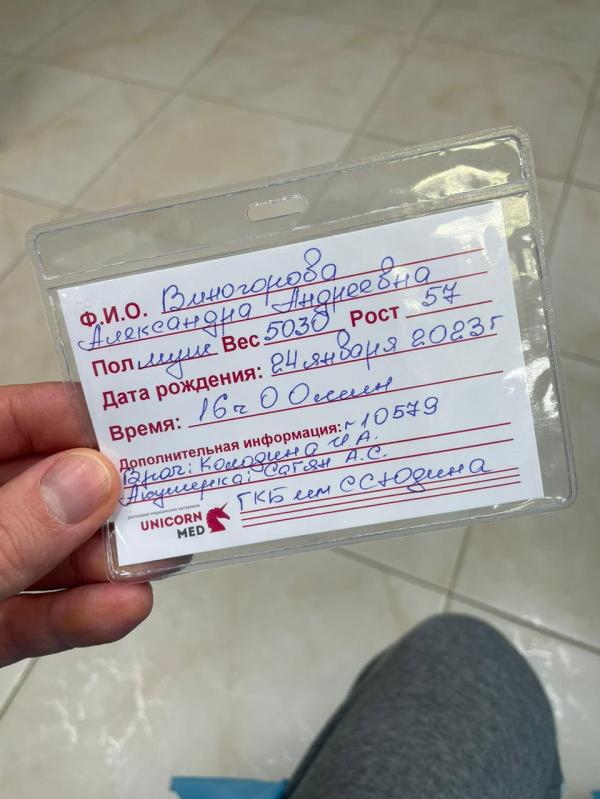 Ф.И.О. Виногорова
Александра Андреевна
Пол муж Вес 5030 Рост 57
Дата рождения: 24 января 2023г
Время: 16ч 00мин
Дополнительная информация: г 10579
Врач: Колодина И.А.
Акушерка: Сагян А.С.
расходные медицинские материалы
UNICORN
MED
ГКБ им С С Юдина